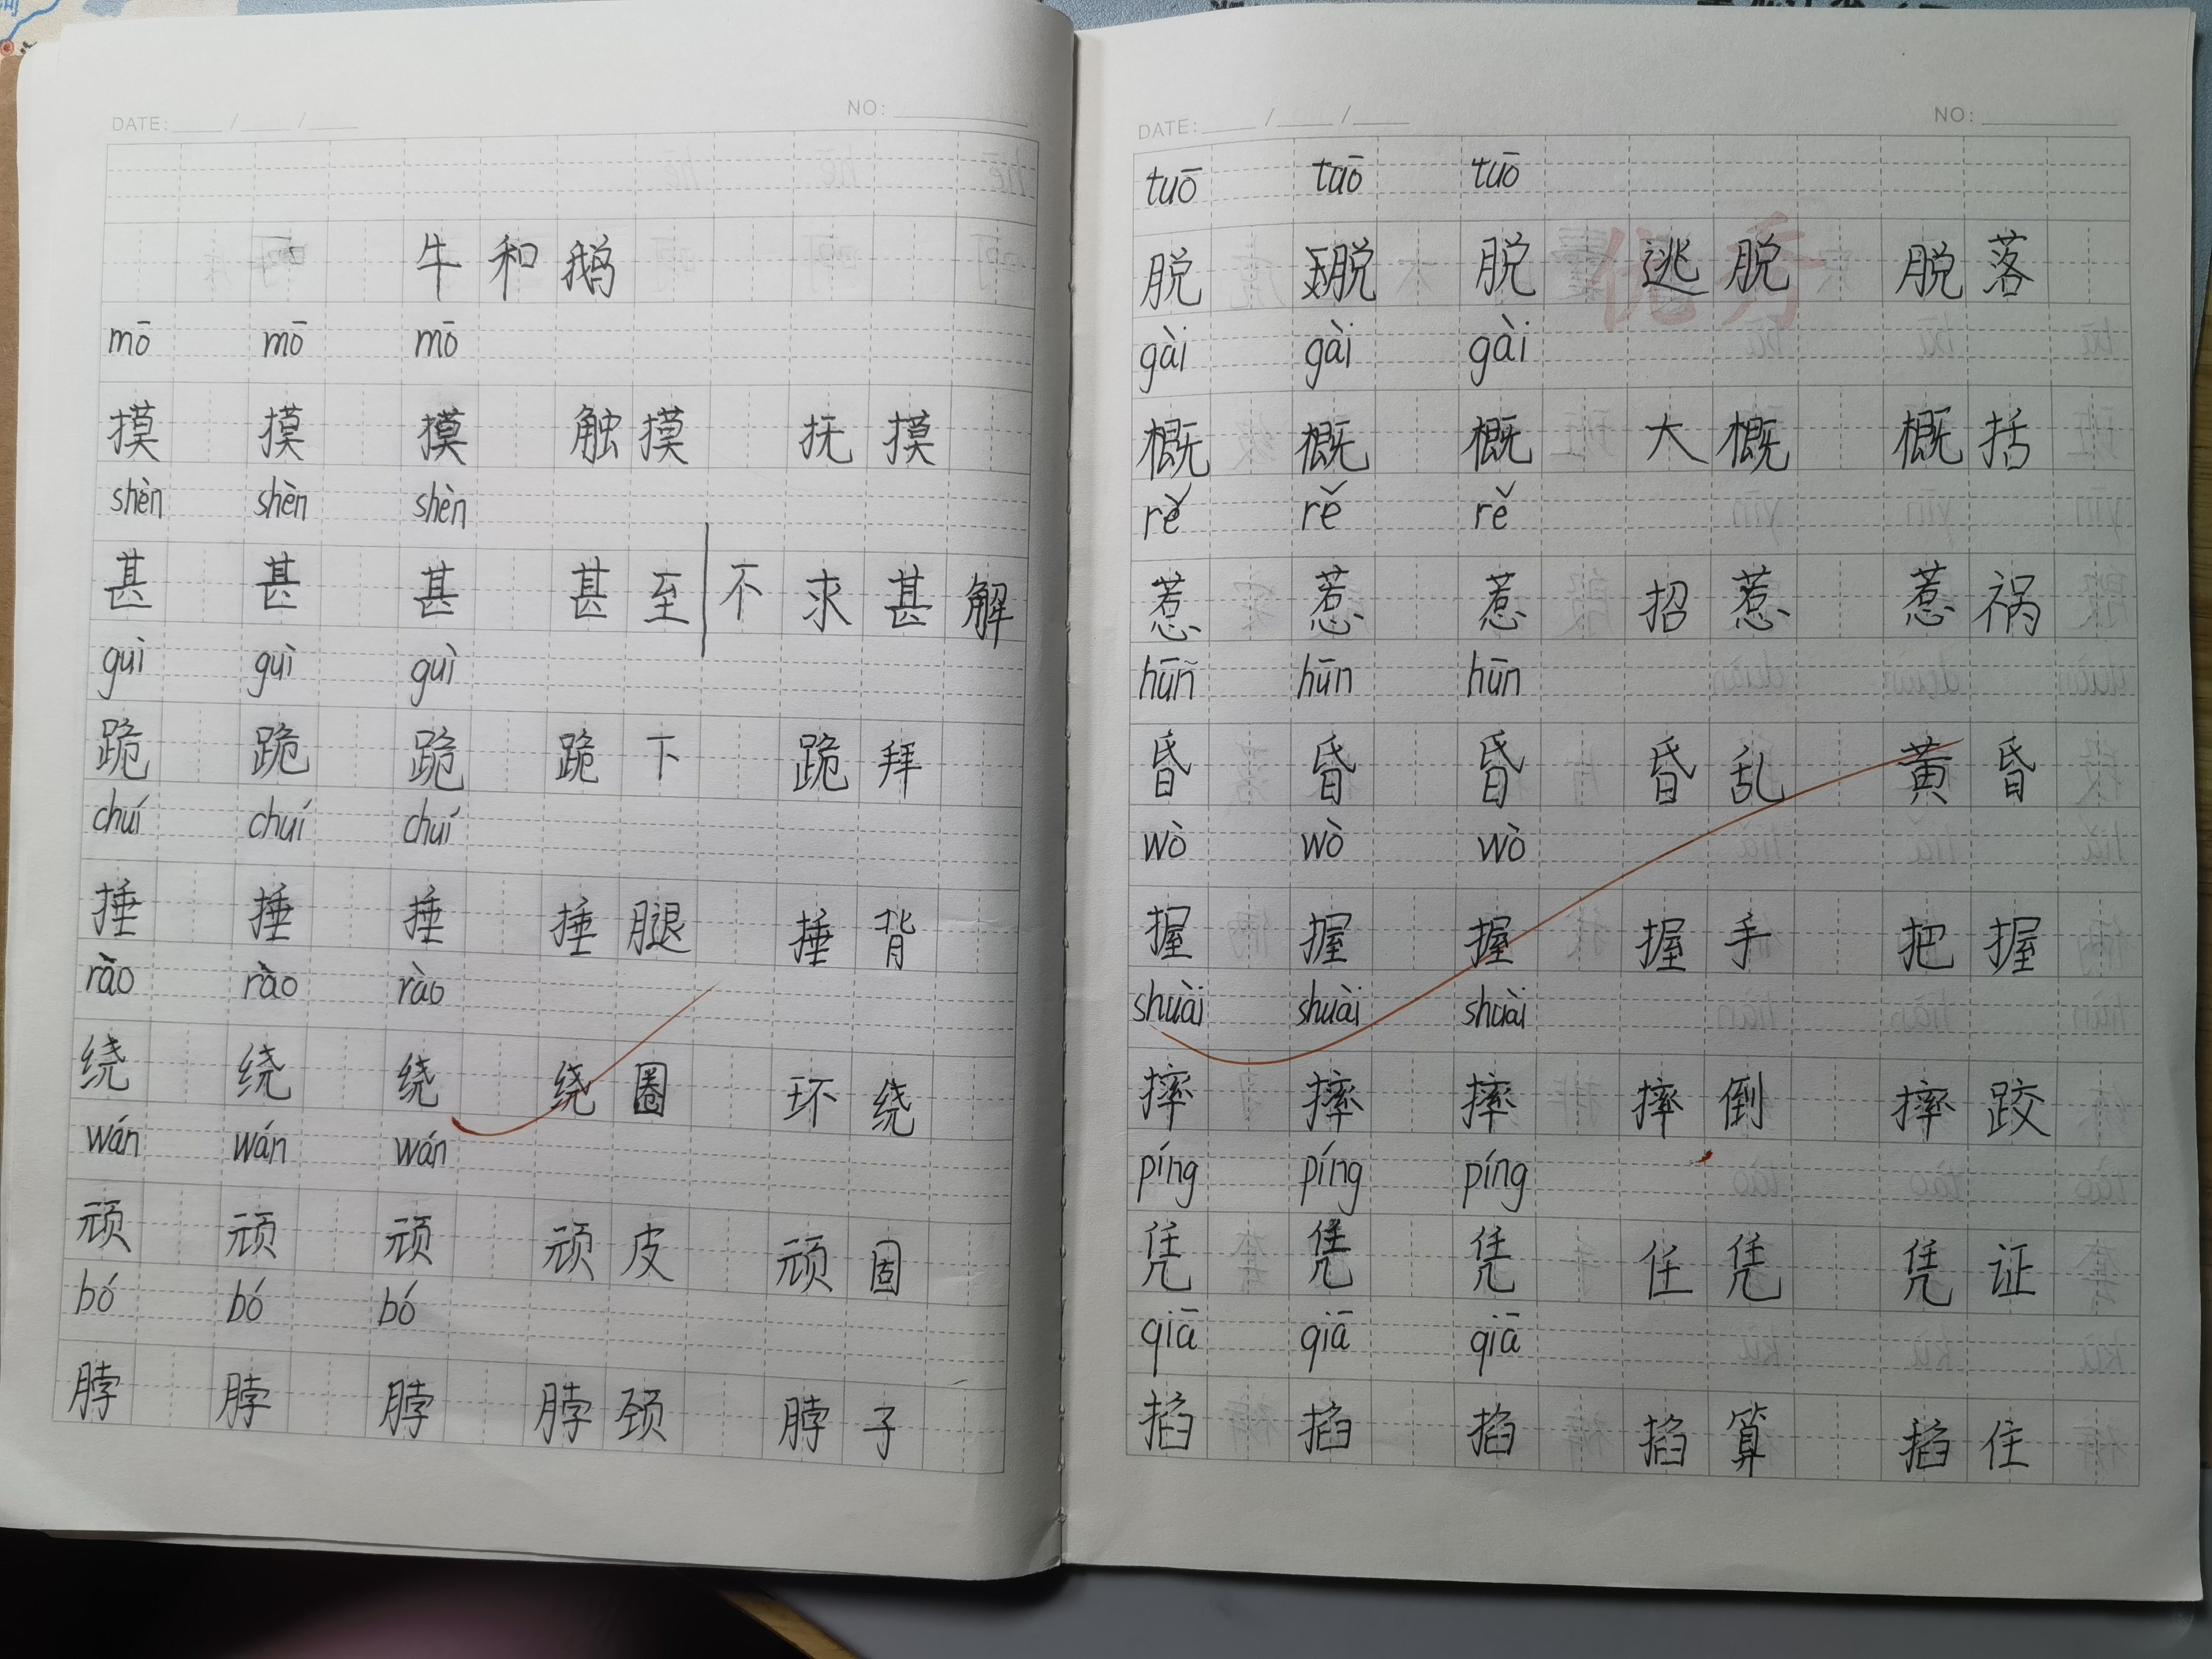 DATE: / / NO:
牛和鹅
mō mō mō
摸 摸 摸 触摸 抚摸
shèn shèn shèn
甚 甚 甚 甚至 不求甚解
guì guì guì
跪 跪 跪 跪下 跪拜
chuí chuí chuí
捶 捶 捶 捶腿 捶背
rào rào rào
绕 绕 绕 绕圈 环绕
wán wán wán
顽 顽 顽 顽皮 顽固
bó bó bó
脖 脖 脖 脖颈 脖子
DATE: / / NO:
tuō tuō tuō
脱 脱 脱 逃脱 脱落
优秀
gài gài gài
概 概 概 大概 概括
rě rě rě
惹 惹 惹 招惹 惹祸
hūn hūn hūn
昏 昏 昏 昏乱 黄昏
wò wò wò
握 握 握 握手 把握
shuāi shuài shuài
摔 摔 摔 摔倒 摔跤
píng píng píng
凭 凭 凭 任凭 凭证
qiā qiā qiā
掐 掐 掐 掐算 掐住